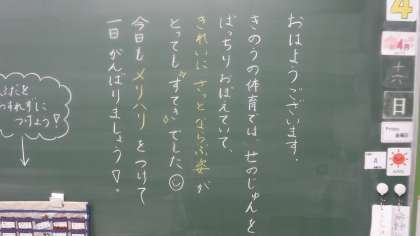 おはようございます。
きのうの体育では、せのじゅんを
ばっちりおぼえていて、
きれいに さっとならぶ姿が
とっても“すてき”でした☺
今日も メリハリ をつけて
一日 がんばりましょう!
ふだと
わすれずに
つけよう!
4
4月
十六
日
Friday
金曜日
A